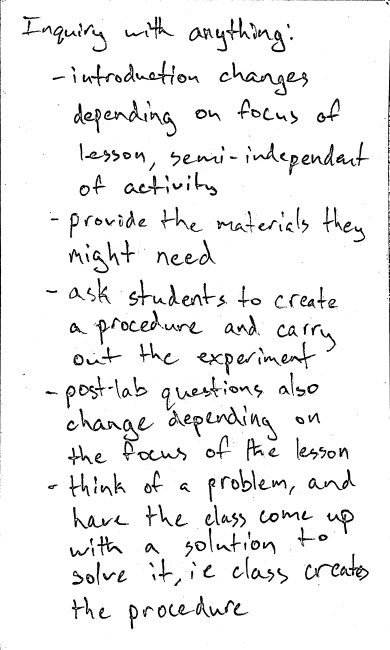 Inquiry with anything:
- introduction changes
depending on focus of
lesson, semi-independent
of activity
- provide the materials they
might need
- ask students to create
a procedure and carry
out the experiment
- post-lab questions also
change depending on
the focus of the lesson
- think of a problem, and
have the class come up
with a solution to
solve it, ie class creates
the procedure